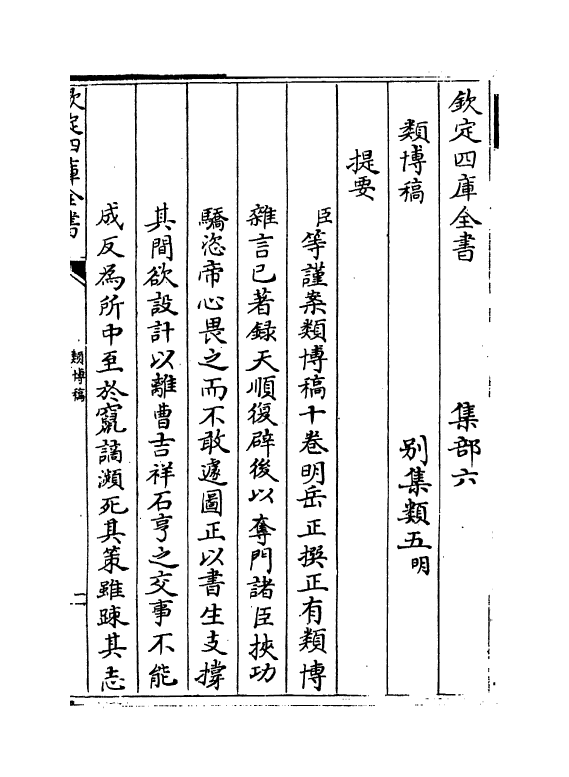 欽定四庫全書 集部六
類博稿 别集類五明
提要
臣等謹案類博稿十卷明岳正撰正有類博
雜言已著録天順復辟後以奪門諸臣挾功
驕恣帝心畏之而不敢遽圖正以書生支撐
其間欲設計以離曹吉祥石亨之交事不能
成反為所中至於竄謫瀕死其策雖踈其志
欽定四庫全書
類博稿